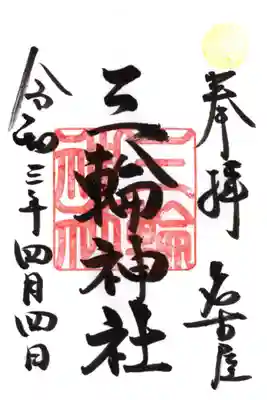 奉拝
名古屋
三輪神社
三輪神社
令和三年四月四日